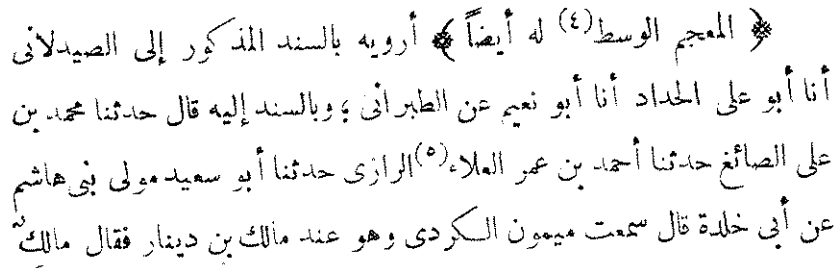 ﴿ المعجم الوسط(٤) له أيضاً ﴾ أرويه بالسند المذكور إلى الصيدلانى
أنا أبو على الحداد أنا أبو نعيم عن الطبرانى ؛ وبالسند إليه قال حدثنا محمد بن
على الصائغ حدثنا أحمد بن عمر العلاء(٥) الرازى حدثنا أبو سعيد مولى بنى هاشم
عن أبى خلدة قال سمعت ميمون الكردى وهو عند مالك بن دينار فقال مالكٌ